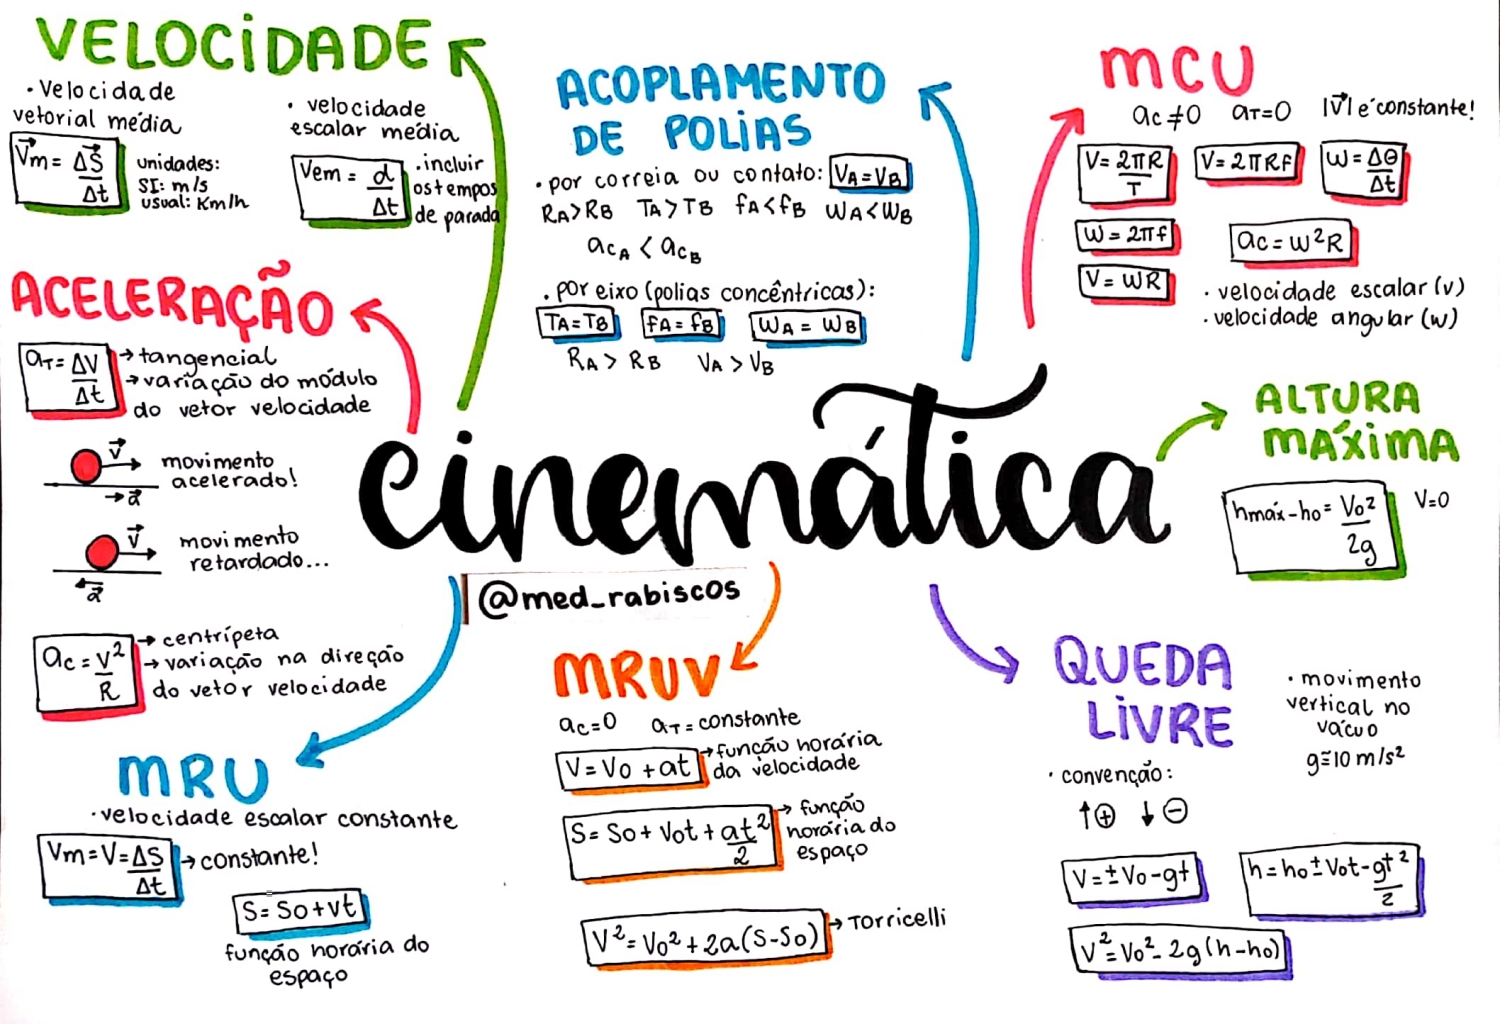 VELOCIDADE
• velocidade
vetorial média
V⃗m = ΔS⃗/Δt
unidades:
SI: m/s
usual: Km/h
• velocidade
escalar média
Vem = d/Δt
• incluir
os tempos
de parada
ACOPLAMENTO
DE POLIAS
• por correia ou contato: VA = VB
RA > RB TA > TB fA < fB WA < WB
acA < acB
• por eixo (polias concêntricas):
TA = TB fA = fB WA = WB
RA > RB VA > VB
MCU
ac ≠ 0 aT = 0 |V⃗| é constante!
V = 2πR/T V = 2πRf W = Δθ/Δt
W = 2πf ac = W²R
V = WR
• velocidade escalar (v)
• velocidade angular (w)
ACELERAÇÃO
aT = ΔV/Δt
→ tangencial
→ variação do módulo
do vetor velocidade
v⃗
movimento
acelerado!
→ a⃗
v⃗
movimento
retardado...
← a⃗
ac = v²/R
→ centrípeta
→ variação na direção
do vetor velocidade
cinemática
@med_rabiscos
ALTURA
MÁXIMA
hmáx - ho = Vo²/2g V=0
MRU
• velocidade escalar constante
Vm = V = ΔS/Δt → constante!
S = So + vt
função horária do
espaço
MRUV
ac = 0 aT = constante
V = Vo + at → função horária
da velocidade
S = So + Vot + at²/2 → função
horária do
espaço
V² = Vo² + 2a(S - So) → Torricelli
QUEDA
LIVRE
• movimento
vertical no
vácuo
g ≅ 10 m/s²
• convenção:
↑ ⊕ ↓ ⊖
V = ± Vo - gt h = ho ± Vot - gt²/2
V² = Vo² - 2g(h - ho)